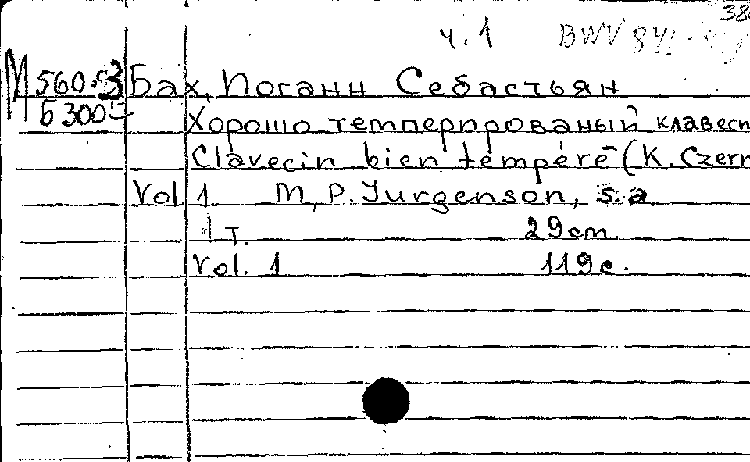 38
ч. 1 BWV 84
М 560.3 Бах, Иоганн Себастьян
Б 3005 Хорошо темперированый клавесн
Clavecin bien tempéré (K. Czern
Vol 1 M, P. Jurgenson, s.a
1 т. 29cm
Vol. 1 119c.